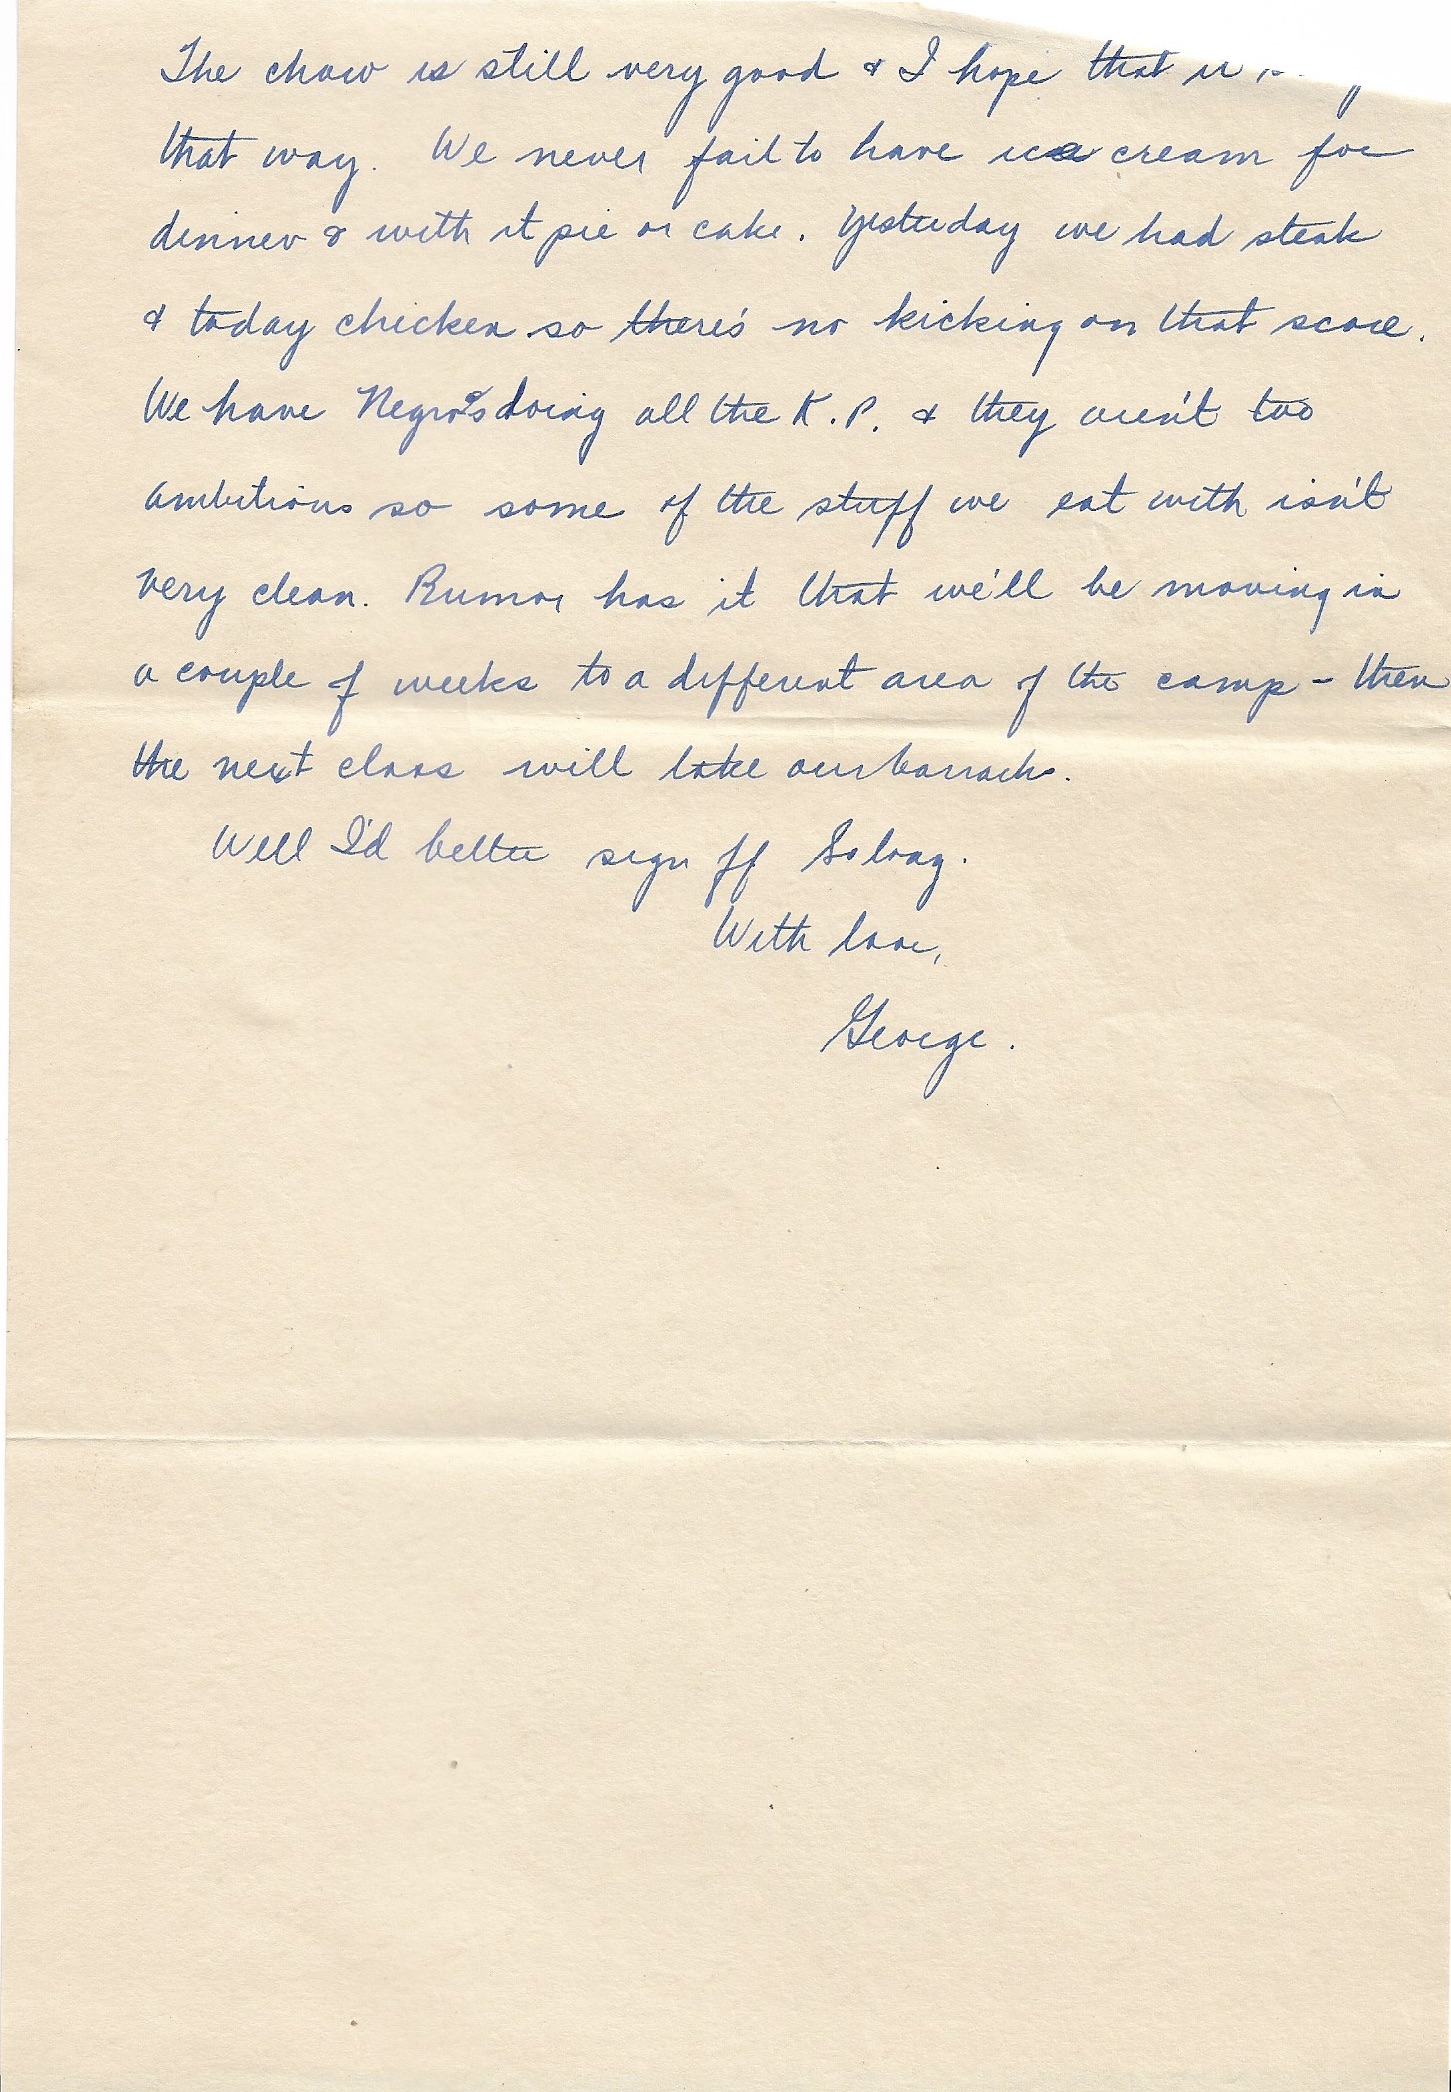 The chow is still very good & I hope that
that way. We never fail to have ice cream for
dinner & with it pie or cake. Yesterday we had steak
& today chicken so there's no kicking on that score.
We have Negroes doing all the K.P. & they aren't too
ambitious so some of the stuff we eat with isn't
very clean. Rumor has it that we'll be moving in
a couple of weeks to a different area of the camp - then
the next class will take our barracks.
Well I'd better sign off So long.
With love,
George.